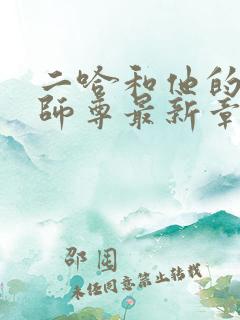 二哈和他的
師尊最新章
邵圉
未经同意禁止转载